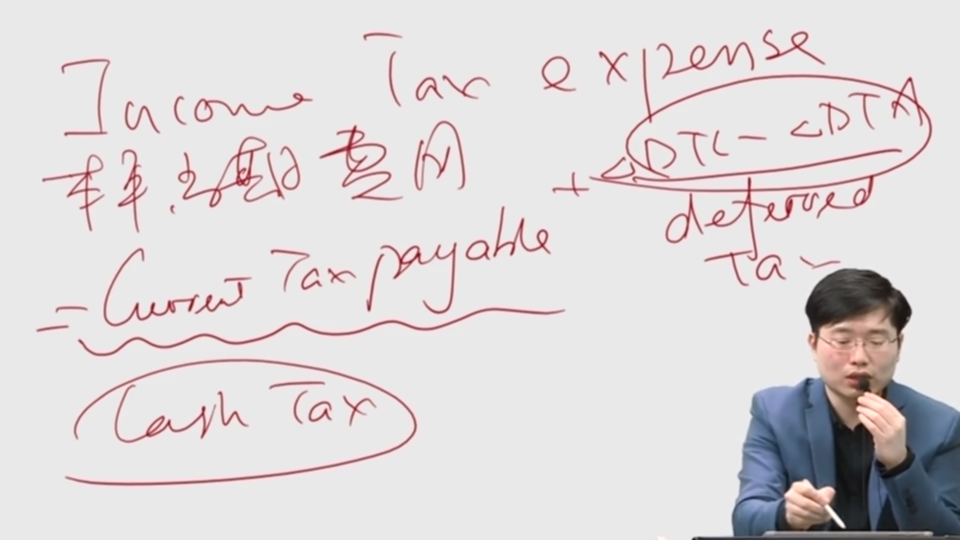 Income Tax expense
费用
= Current Tax payable + △DTL - △DTA
deferred
Tax
Cash Tax